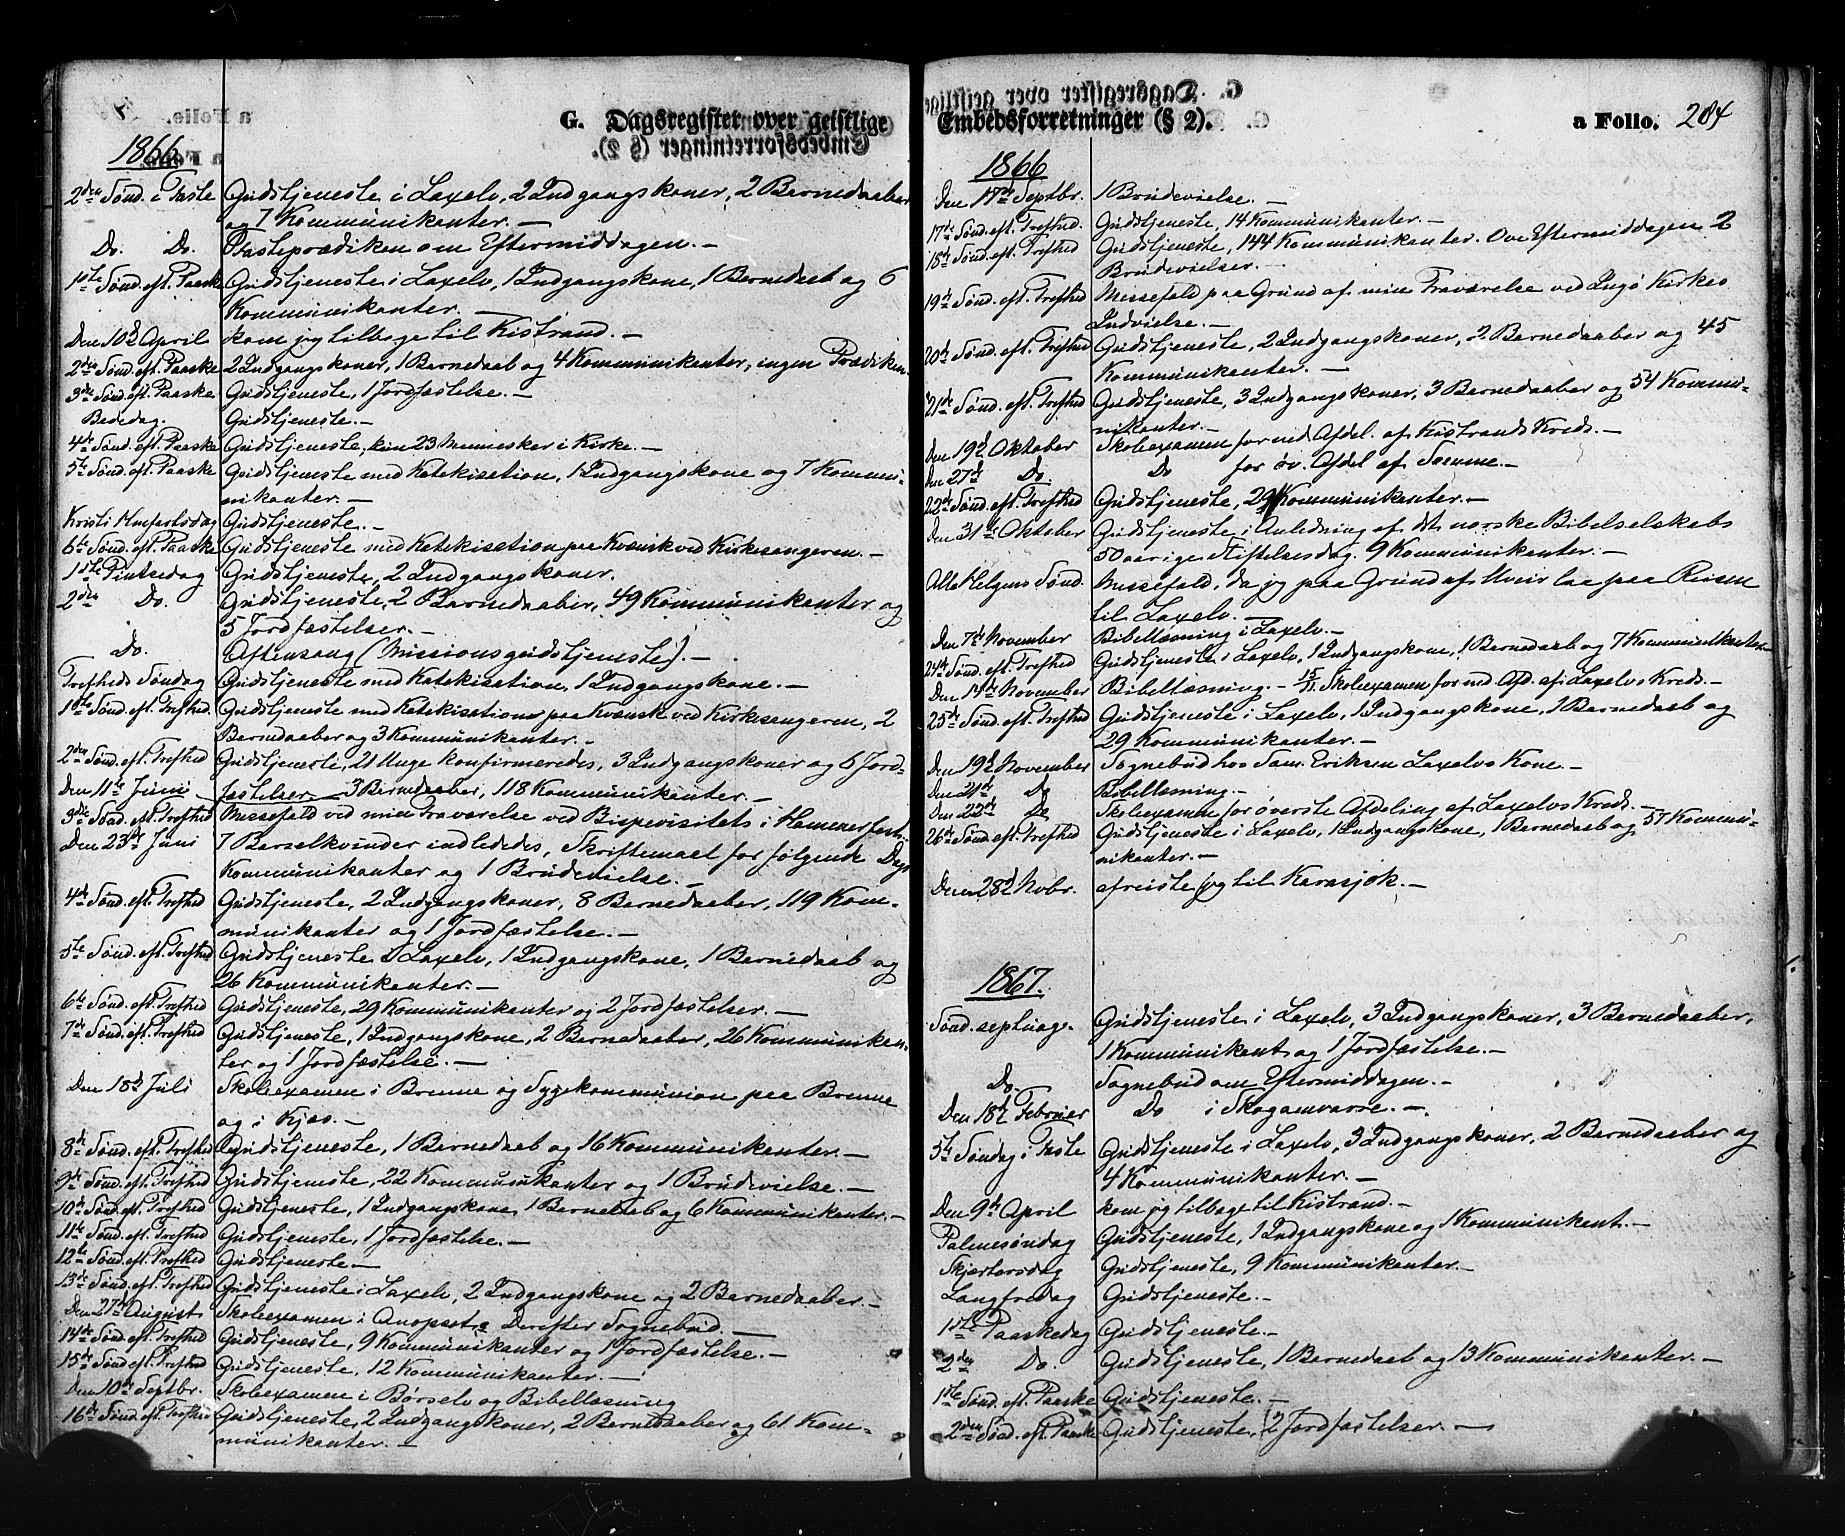 G. Dagsregister over geistlige
1866
2den Sønd. i Faste Gudstjeneste i Laxelv, 2 Indgangskoner, 2 Barnedaaber
og 7 Kommunikanter. —
Do. Do. Fasteprædiken om Eftermiddagen. —
1ste Sønd. eft. Paaske Gudstjeneste i Laxelv, 1 Indgangskone, 1 Barnedaab og 6
Kommunikanter. —
Den 10d April kom jeg tilbage til Kistrand. —
2den Sønd. eft. Paaske 2 Indgangskoner, 1 Barnedaab og 4 Kommunikanter, ingen Prædiken.
3die Sønd. eft. Paaske Gudstjeneste, 1 Jordfæstelse. —
Bededag. Gudstjeneste. —
4de Sønd. eft. Paaske Gudstjeneste, kun 23 Mennesker i Kirke. —
5te Sønd. eft. Paaske Gudstjeneste med Katekisation, 1 Indgangskone og 7 Kommu-
nikanter. —
Kristi Himfartsdag Gudstjeneste. —
6te Sønd. eft. Paaske Gudstjeneste med Katekisation paa Kvænsk ved Kirkesangeren. —
1ste Pintsedag Gudstjeneste, 2 Indgangskoner.
2den Do. Gudstjeneste, 2 Barnedaaber, 49 Kommunikanter og
5 Jordfæstelser. —
Do. Aftensang (Missionsgudstjeneste). —
Trefheds Søndag Gudstjeneste med Katekisation, 1 Indgangskone. —
1ste Sønd. eft. Trefhed. Gudstjeneste med Katekisation paa Kvænsk ved Kirkesangeren, 2
Barnedaaber og 3 Kommunikanter. —
2den Sønd. eft. Trefhed Gudstjeneste, 21 Unge konfirmeredes, 3 Indgangskoner og 6 Jord-
Den 11te Juni fæstelser. — 3 Barnedaaber, 118 Kommunikanter. —
3die Sønd. eft. Trefhed Messefald ved min Fraværelse ved Bispevisitats i Hammerfest.
Den 23de Juni 7 Barselkvinder indlededes, Skriftemaal for følgende Dags
Kommunikanter og 1 Brudevielse. —
4de Sønd. eft. Trefhed Gudstjeneste, 2 Indgangskoner, 8 Barnedaaber, 119 Kom-
munikanter og 1 Jordfæstelse. —
5te Sønd. eft. Trefhed Gudstjeneste i Laxelv, 1 Indgangskone, 1 Barnedaab og
26 Kommunikanter. —
6te Sønd. eft. Trefhed Gudstjeneste, 29 Kommunikanter og 2 Jordfæstelser. —
7de Sønd. eft. Trefhed Gudstjeneste, 1 Indgangskone, 2 Barnedaaber, 26 Kommunikan-
ter og 1 Jordfæstelse. —
Den 18d Juli Skoleexamen i Brenne og Sygekommunion paa Brenne
og i Kjæs. —
8de Sønd. eft. Trefhed Gudstjeneste, 1 Barnedaab og 16 Kommunikanter. —
9de Sønd. eft. Trefhed Gudstjeneste, 22 Kommunikanter og 1 Brudevielse. —
10de Sønd. eft. Trefhed Gudstjeneste, 1 Indgangskone, 1 Barnedaab og 6 Kommunikanter. —
11te Sønd. eft. Trefhed Gudstjeneste, 1 Jordfæstelse. —
12te Sønd. eft. Trefhed Gudstjeneste —
13de Sønd. eft. Trefhed Gudstjeneste i Laxelv, 2 Indgangskone og 2 Barnedaaber. —
Den 27d August Skoleexamen i Anopset. Derefter Sognebud. —
14de Sønd. eft. Trefhed Gudstjeneste, 9 Kommunikanter og 1 Jordfæstelse. —
15de Sønd. eft. Trefhed Gudstjeneste, 12 Kommunikanter. —
Den 10de Septbr. Skoleexamen i Børselv og Bibellæsning
16de Sønd. eft. Trefhed Gudstjeneste, 2 Indgangskoner, 2 Barnedaaber og 61 Kom-
munikanter. —
Embedsforretninger (§ 2).
a Folio. 204
1866
Den 17de Septbr. 1 Brudevielse. —
17de Sønd. eft. Trefhed. Gudstjeneste, 14 Kommunikanter. —
18de Sønd. eft. Trefhed Gudstjeneste, 144 Kommunikanter. Om Eftermiddagen 2
Brudevielser. —
19de Sønd. eft. Trefhed Messefald paa Grund af min Fraværelse ved Ingø Kirkes
Indvielse. —
20de Sønd. eft. Trefhed Gudstjeneste, 2 Indgangskoner, 2 Barnedaaber og 45
Kommunikanter. —
21de Sønd. eft. Trefhed Gudstjeneste, 3 Indgangskoner, 3 Barnedaaber og 54 Kommu-
nikanter. —
Den 19d Oktober Skoleexamen for ned. Afdel. af Kistrands Kreds. —
Den 27de Do. Do for øv. Afdel af Samme. —
22de Sønd. eft. Trefhed Gudstjeneste, 29 Kommunikanter. —
Den 31te Oktober Gudstjeneste i Anledning af det norske Bibelselskabs
50 aarige Stiftelsesdag. 9 Kommunikanter. —
Alle Helgens Sønd. Messefald, da jeg paa Grund af Uveir laa paa Reisen
til Laxelv. —
Den 7de November Bibellæsning i Laxelv. —
24de Sønd. eft. Trefhed Gudstjeneste i Laxelv, 1 Indgangskone, 1 Barnedaab og 7 Kommunikanter. —
Den 14de November Bibellæsning. — 15/11 Skoleexamen for ned. Afd. af Laxelvs Kreds. —
25de Sønd. eft. Trefhed Gudstjeneste i Laxelv, 1 Indgangskone, 1 Barnedaab og
29 Kommunikanter. —
Den 19d November Sognebud hos Sam. Eriksen Laxelvs Kone. —
Den 21de Do Bibellæsning. —
Den 22de Do Skoleexamen for øverste Afdeling af Laxelvs Kreds. —
26de Sønd. eft. Trefhed Gudstjeneste i Laxelv, 1 Indgangskone, 1 Barnedaab og 57 Kommu-
nikanter. —
Den 28d Nvbr. afreiste jeg til Karasjok. —
1867.
Sønd. septuag. Gudstjeneste i Laxelv, 3 Indgangskoner, 3 Barnedaaber,
1 Kommunikant og 1 Jordfæstelse. —
Do. Sognebud om Eftermiddagen. —
Den 18d Februar Do i Skoganvarre. —
5te Søndag i Faste Gudstjeneste i Laxelv, 3 Indgangskoner, 2 Barnedaaber og
4 Kommunikanter. —
Den 9de April kom jeg tilbage til Kistrand. —
Palmesøndag Gudstjeneste, 1 Indgangskone og 1 Kommunikant. —
Skjærtorsdag Gudstjeneste, 9 Kommunikanter. —
Langfredag Gudstjeneste. —
1ste Paaskedag Gudstjeneste. —
2den Do. Gudstjeneste, 1 Barnedaab og 13 Kommunikanter. —
1ste Sønd. eft. Paaske Gudstjeneste. —
2den Sønd. eft. Paaske Gudstjeneste, 2 Jordfæstelser. —